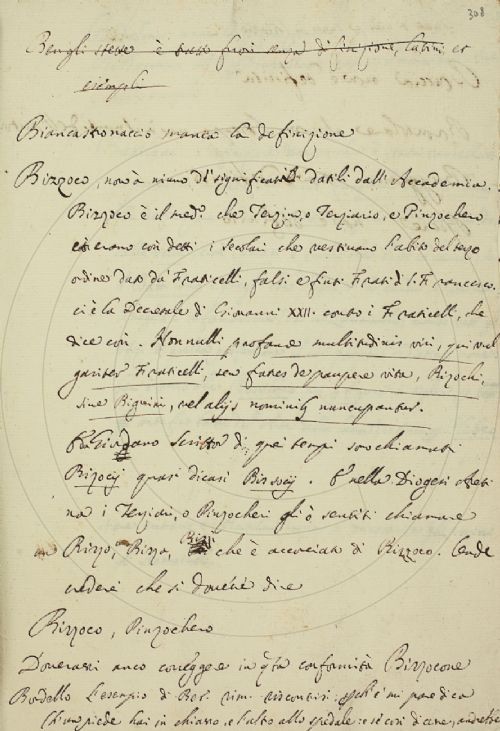 308
Bengli stesse è tratto fuori senza difinizione, latini, et
esempli
Biancastronaccio manca la definizione
Bizzoco, non à niuno de' significati datili dall' Accademia.
Bizzoco è il med.º che Terzino, o Terziario, e Pinzochero
eran così detti i secolari che vestivano l'abito del terzo
ordine dato da Fraticelli, falsi e finti Frati di S. Francesco.
ci è la Decretale di Giovanni XXII. contro i Fraticelli, che
dice così. Nonnulli profane multitudinis viri, qui vul
gariter Fraticelli, seu fratres de paupere vita, Bizochi,
sive Biguini, vel alijs nominib nuncupantur.
Giordano Scrittor di quei tempi son chiamati
Bizocij quasi dicasi Bissocij. E nella Diogesi Areti
na i Terziari, o Pinzocheri gli ò sentiti chiamare
Bizzo, Bizza, Bizzi che è accorciato di Bizzoco. Onde
crederei che si dovesse dire
Bizzoco, Pinzochero
Doverassi anco correggere in q.ta conformità Bizzocone
Bordello L'esempio di Ber. rim. perch' e' mi pare dica
Ch'un piede hai in chiasso, e l'altro allo spedale: e se così dicesse, andrebbe